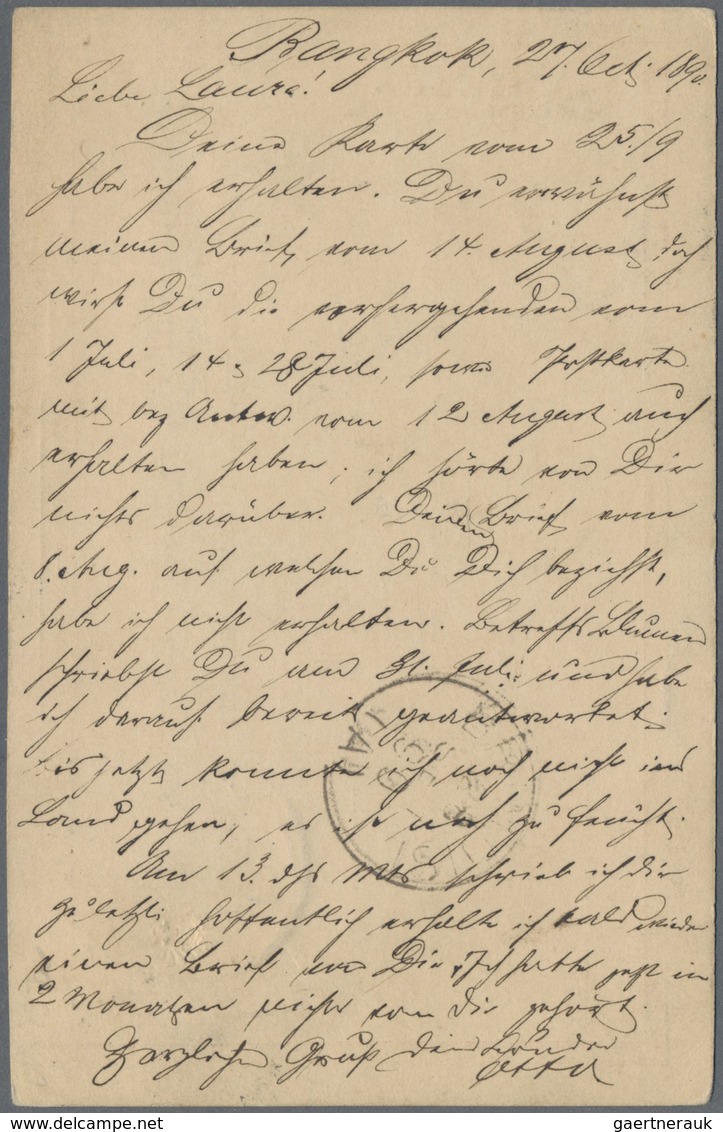 Bangkok, 27. Oct. 1890.
Liebe Laura!
Deine Karte vom 25./9
habe ich erhalten. Du erwähnst
meinen Brief vom 14. August, doch
wirst Du die vorhergehenden vom
1 Juli, 14 & 28 Juli, sowie Postkarte
mit bez Antw. vom 12 August auch
erhalten haben, ich hörte von Dir
nichts darüber. Deinen Brief vom
8. Aug. auf welchen Du Dich beziehst,
habe ich nicht erhalten. Betreffs Blumen
schriebst Du am 31. Juli und habe
ich darauf bereits geantwortet.
Bis jetzt konnte ich noch nicht ins
Land gehen, es ist noch zu feucht.
Am 13. dss Mts schrieb ich dir
zuletzt; hoffentlich erhalte ich bald wieder
einen Brief von Dir, Ich hatte jetzt in
2 Monaten nichts von dir gehört.
Herzlichen Gruß dein Bruder
Otto
gaertnerauk